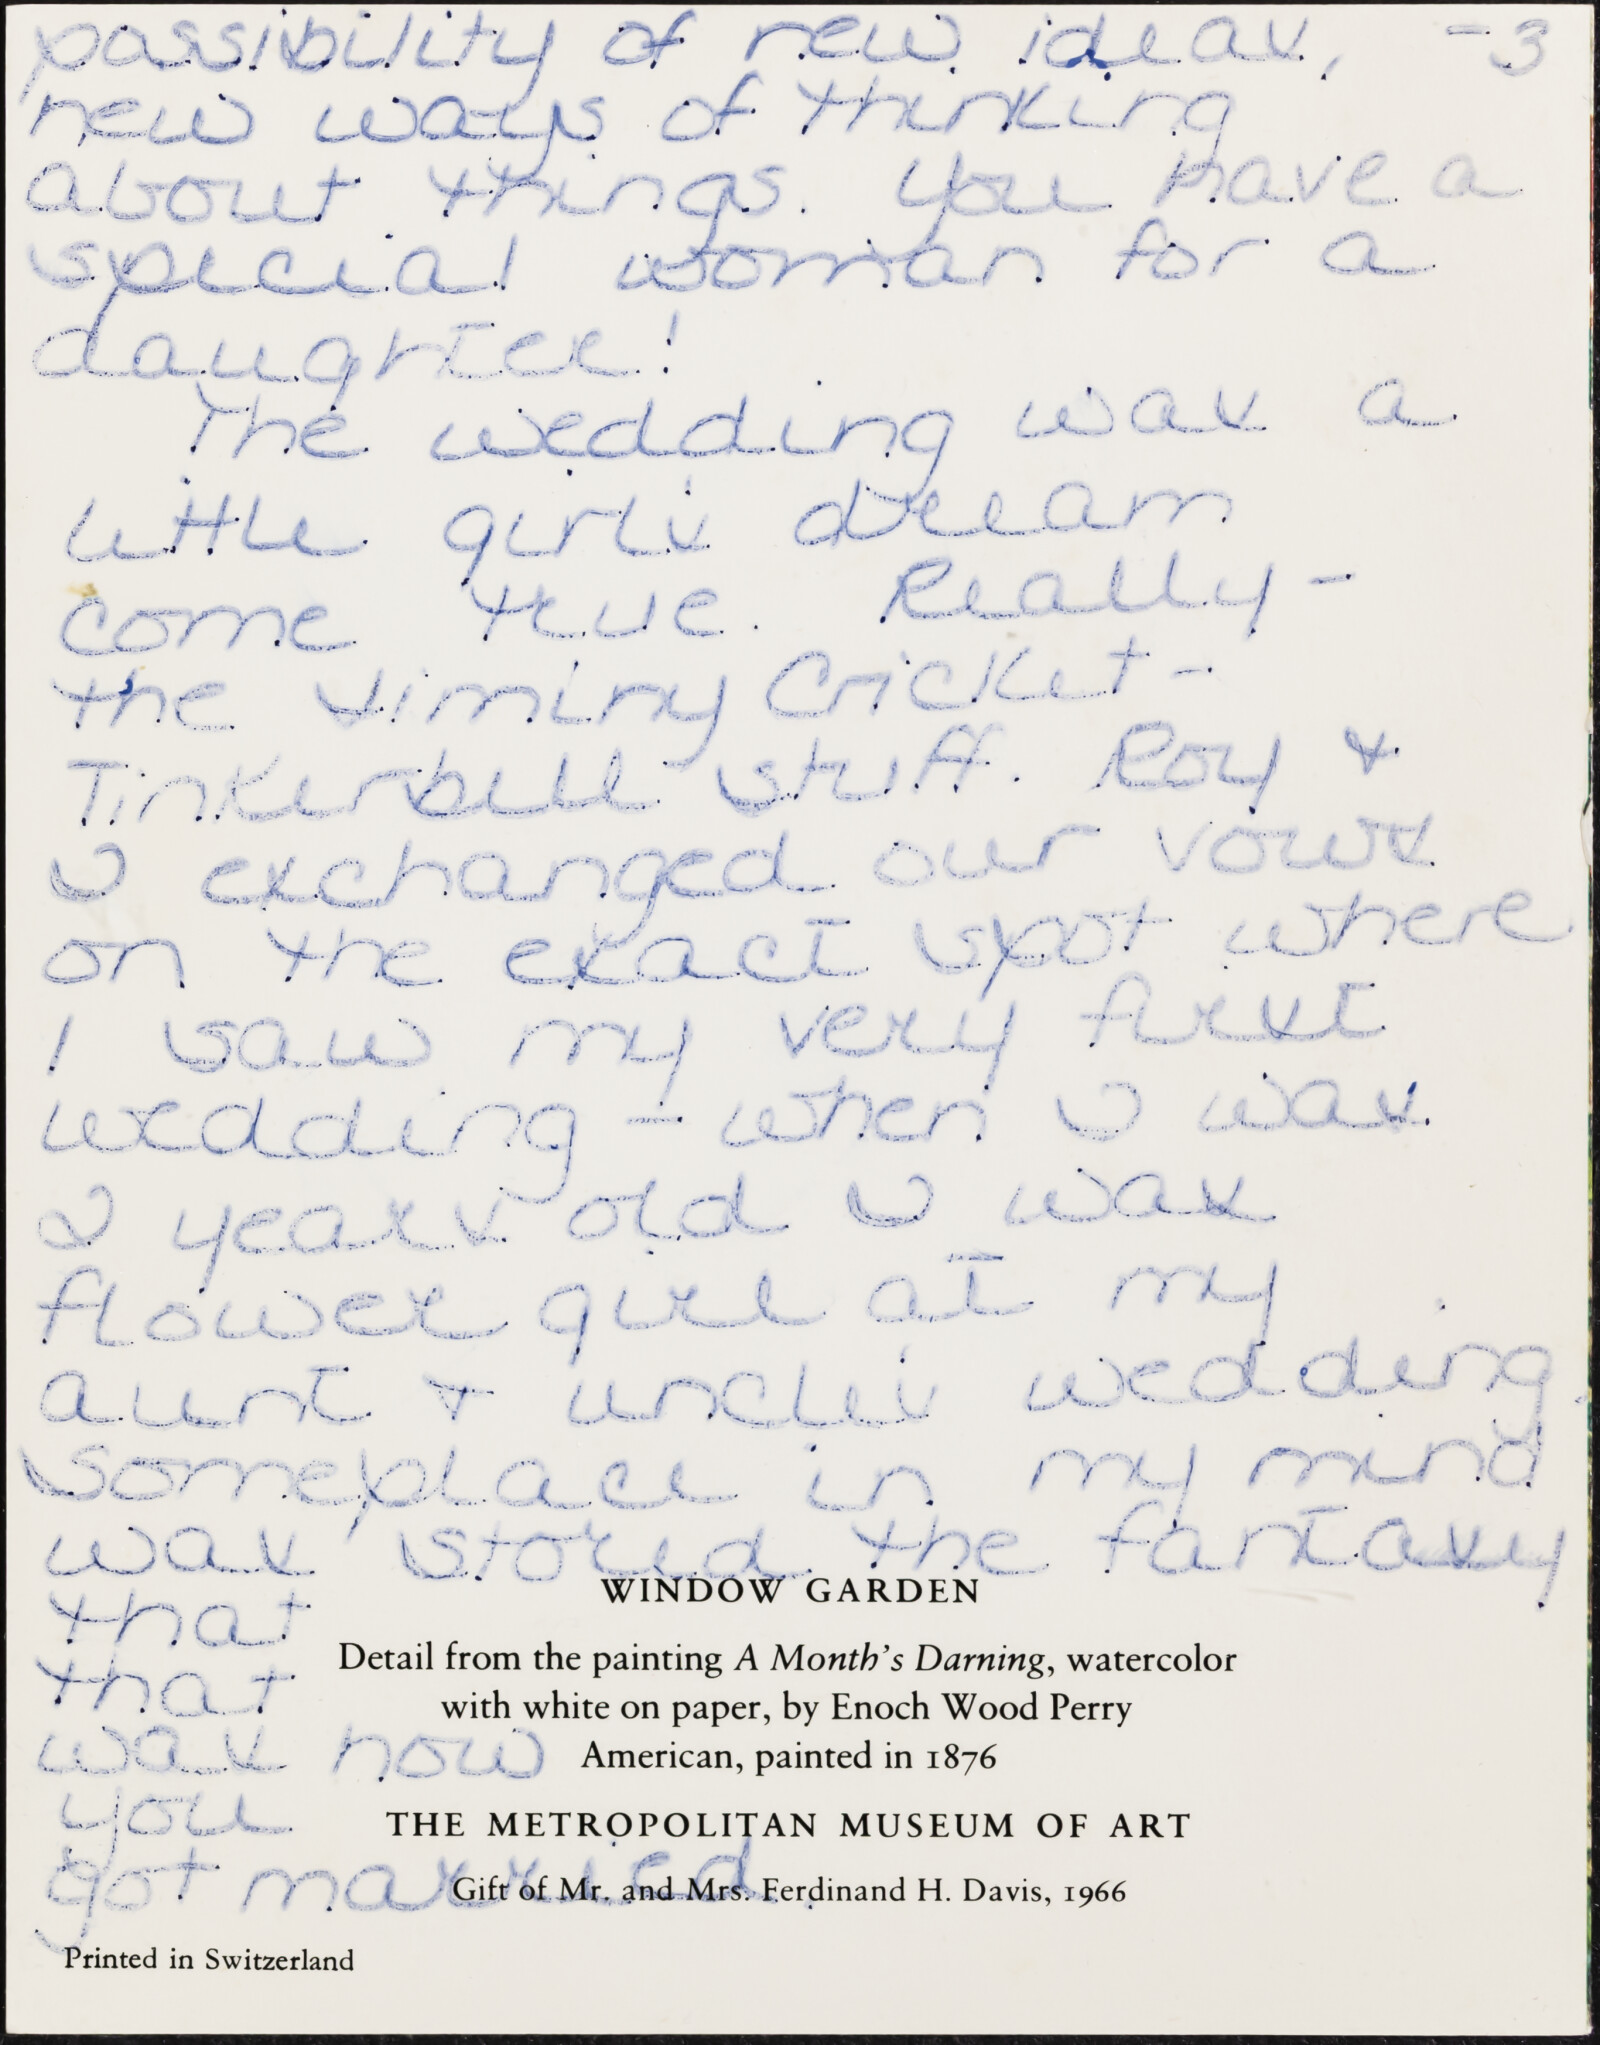 possibility of new ideas, -3
new ways of thinking
about things. You have a
special woman for a
daughter!
The wedding was a
little girls dream
come true. Really -
the Jiminy Cricket -
Tinkerbell stuff. Roy &
I exchanged our vows
on the exact spot where
I saw my very first
wedding - when I was
2 years old I was
flower girl at my
aunt & uncles wedding.
Someplace in my mind
was stored the fantasy
that
that
was how
you
got married.
WINDOW GARDEN
Detail from the painting A Month's Darning, watercolor
with white on paper, by Enoch Wood Perry
American, painted in 1876
THE METROPOLITAN MUSEUM OF ART
Gift of Mr. and Mrs. Ferdinand H. Davis, 1966
Printed in Switzerland